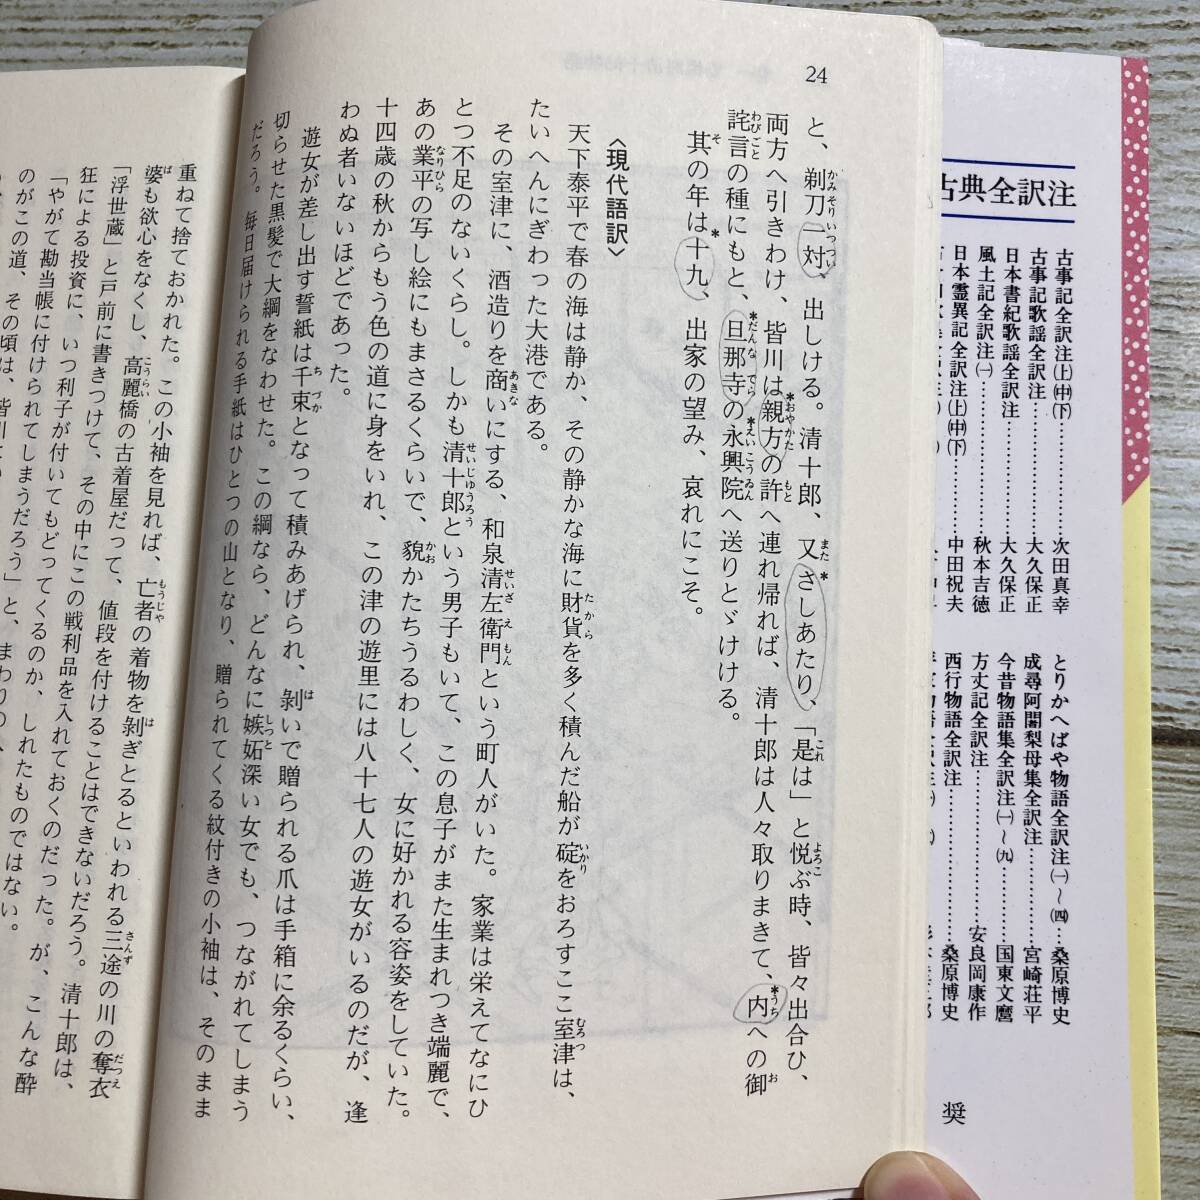 24
と、剃刀一対、出しける。清十郎、又さしあたり、「是は」と悦ぶ時、皆々出合ひ、
両方へ引きわけ、皆川は親方の許へ連れ帰れば、清十郎は人々取りまきて、内への御
詫言の種にもと、旦那寺の永興院へ送りとゞける。
其の年は十九、出家の望み、哀れにこそ。
〈現代語訳〉
天下泰平で春の海は静か、その静かな海に財貨を多く積んだ船が碇をおろすここ室津は、
たいへんにぎわった大港である。
その室津に、酒造りを商いにする、和泉清左衛門という町人がいた。家業は栄えてなにひ
とつ不足のないくらし。しかも清十郎という男子もいて、この息子がまた生まれつき端麗で、
あの業平の写し絵にもまさるくらいで、貌かたちうるわしく、女に好かれる容姿をしていた。
十四歳の秋からもう色の道に身をいれ、この津の遊里には八十七人の遊女がいるのだが、逢
わぬ者いないほどであった。
遊女が差し出す誓紙は千束となって積みあげられ、剝いで贈られる爪は手箱に余るくらい、
切らせた黒髪で大綱をなわせた。この綱なら、どんなに嫉妬深い女でも、つながれてしまう
だろう。毎日届けられる手紙はひとつの山となり、贈られてくる紋付きの小袖は、そのまま
重ねて捨ておかれた。この小袖を見れば、亡者の着物を剝ぎとるといわれる三途の川の奪衣
婆も欲心をなくし、高麗橋の古着屋だって、値段を付けることはできないだろう。清十郎は、
「浮世蔵」と戸前に書きつけて、その中にこの戦利品を入れておくのだった。が、こんな酔
狂による投資に、いつ利子が付いてもどってくるのか、しれたものではない。
「やがて勘当帳に付けられてしまうだろう」と、まわりの
のがこの道、その頃は、皆川
古典全訳注
古事記全訳注(上)(中)(下)……次田真幸
古事記歌謡全訳注……大久保正
日本書紀歌謡全訳注……大久保正
風土記全訳注(一)……秋本吉徳
日本霊異記全訳注(上)(中)(下)……中田祝夫
とりかへばや物語全訳注(一)～(四)…桑原博史
成尋阿闍梨母集全訳注……宮崎荘平
今昔物語集全訳注(一)～(九)……国東文麿
方丈記全訳注……安良岡康作
西行物語全訳注……桑原博史
奨